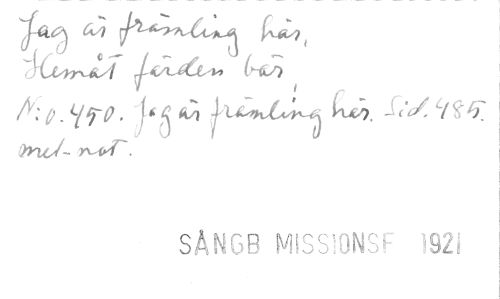 Jag är främling här,
Hemåt färden bär,
N:o. 450. Jag är främling här. Sid. 485.
met-not.
SÅNGB MISSIONSF 1921